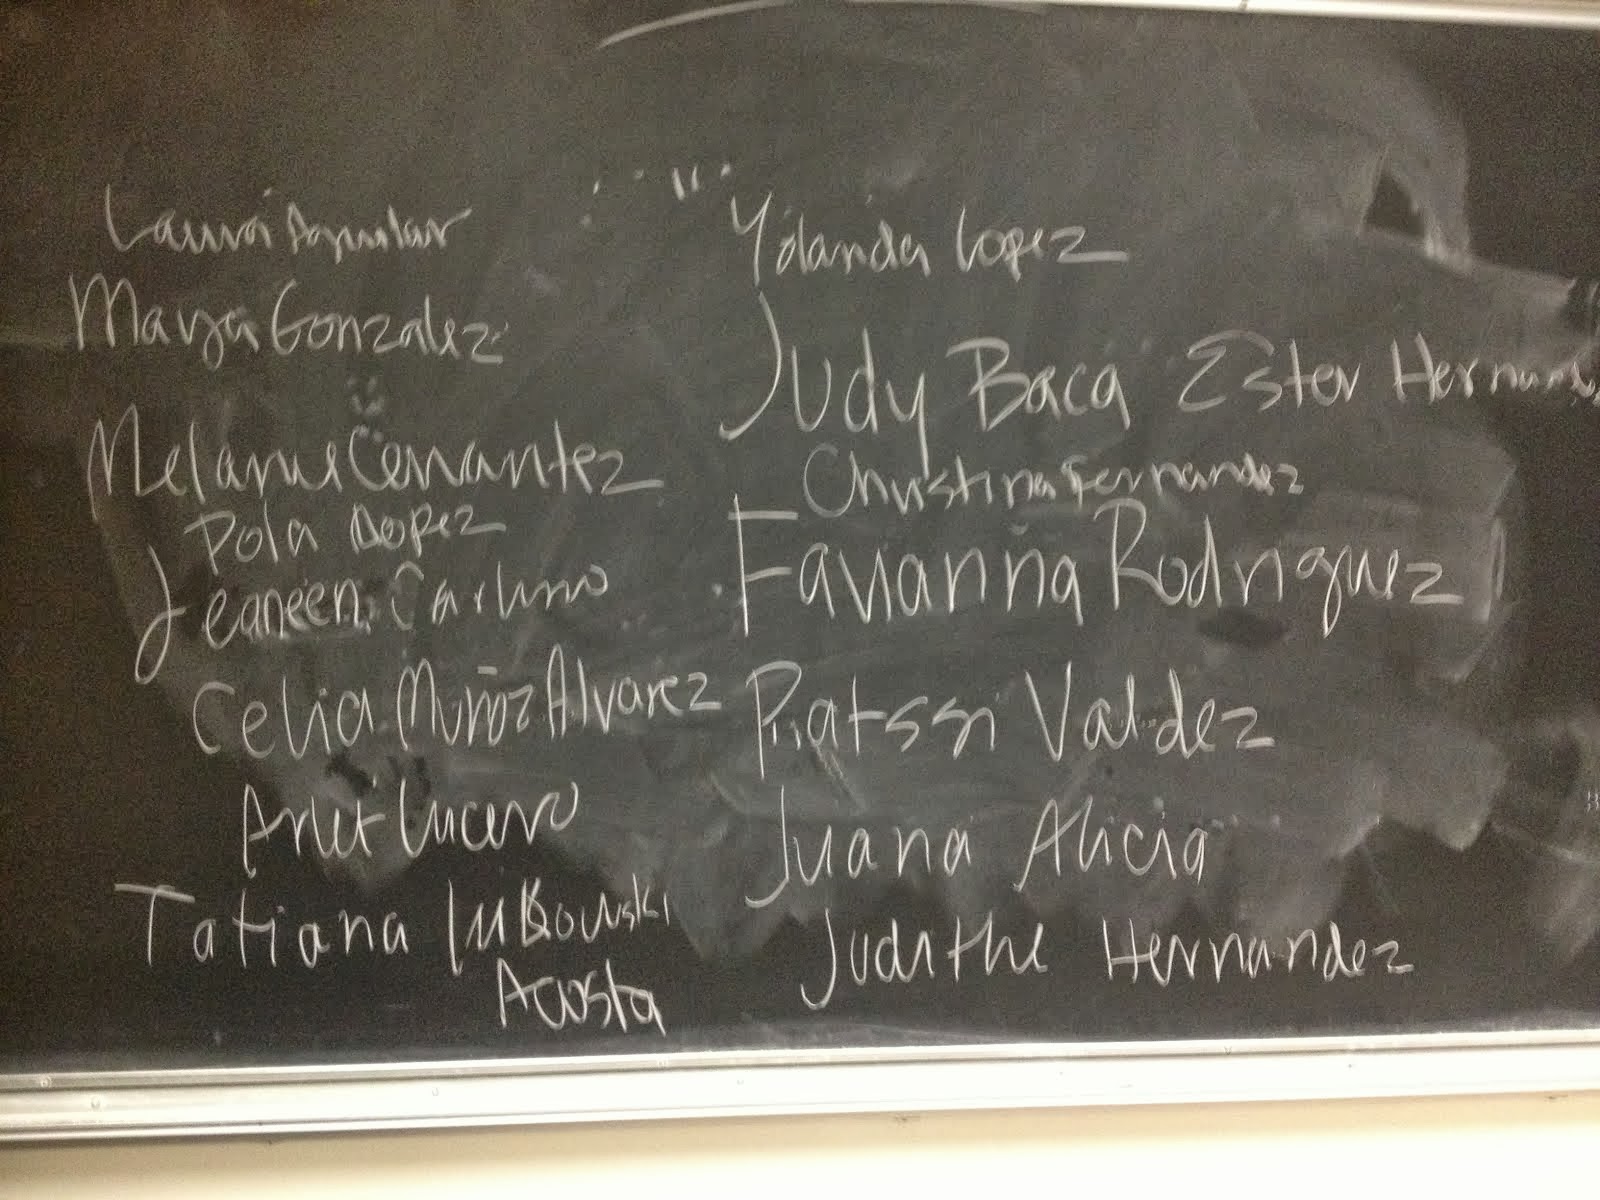 Laura Aguilar
Maya Gonzalez
Melanie Cervantez
Pola Lopez
Jeaneen Carlino
Celia Muñoz Alvarez
Arlet Lucero
Tatiana
Acosta
Yolanda Lopez
Judy Baca Ester
Christina Fernandez
Favianna Rodriguez
Patssi Valdez
Juana Alicia
Judithe Hernandez